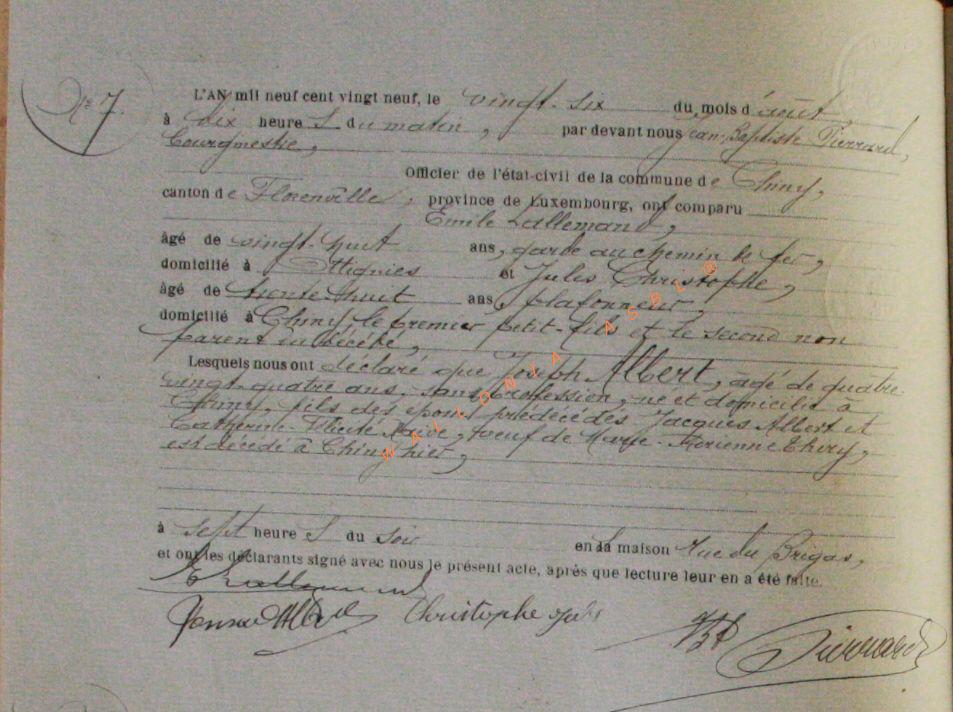 Nº 7.
L'AN mil neuf cent vingt neuf, le vingt-six du mois d'août,
à dix heure s du matin, par devant nous Jean-Baptiste Pierrard,
bourgmestre,
Officier de l'état-civil de la commune de Chiny,
canton de Florenville, province de Luxembourg, ont comparu
Emile Lallemand,
âgé de vingt-huit ans, garde au chemin de fer,
domicilié à et Jules Christophe,
âgé de trente huit ans, plafonneur,
domicilié à Chiny, le premier petit-fils et le second non
parent du décédé,
Lesquels nous ont déclaré que Joseph Albert, âgé de quatre-
vingt-quatre ans, sans profession, né et domicilié à
Chiny, fils des époux prédécédés Jacques Albert et
Catherine-Félicité, veuf de Marie- Thiry,
est décédé à Chiny hier,
à sept heure s du soir en sa maison Rue du Brigas,
et ont les déclarants signé avec nous le présent acte, après que lecture leur en a été faite.
E Lallemand
Christophe Jules
JBP Pierrard
WALLONIA ASBL @